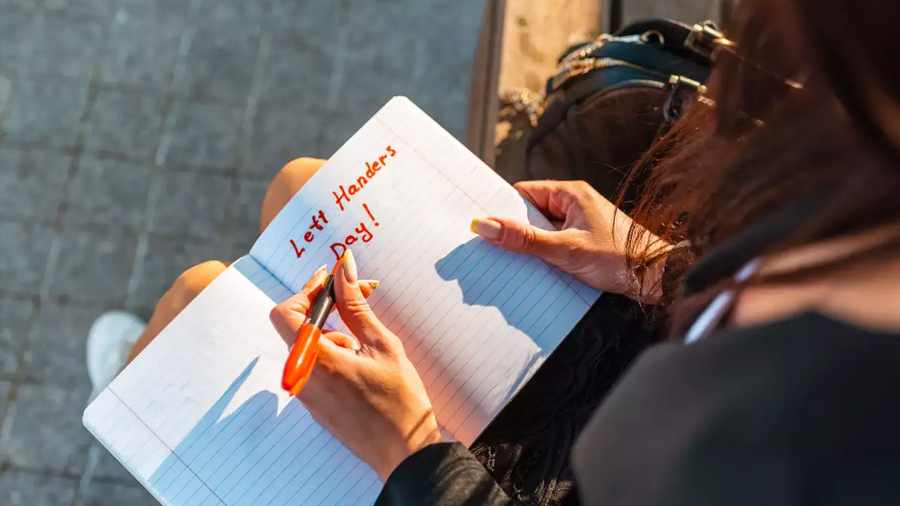 Left Handers
Day!